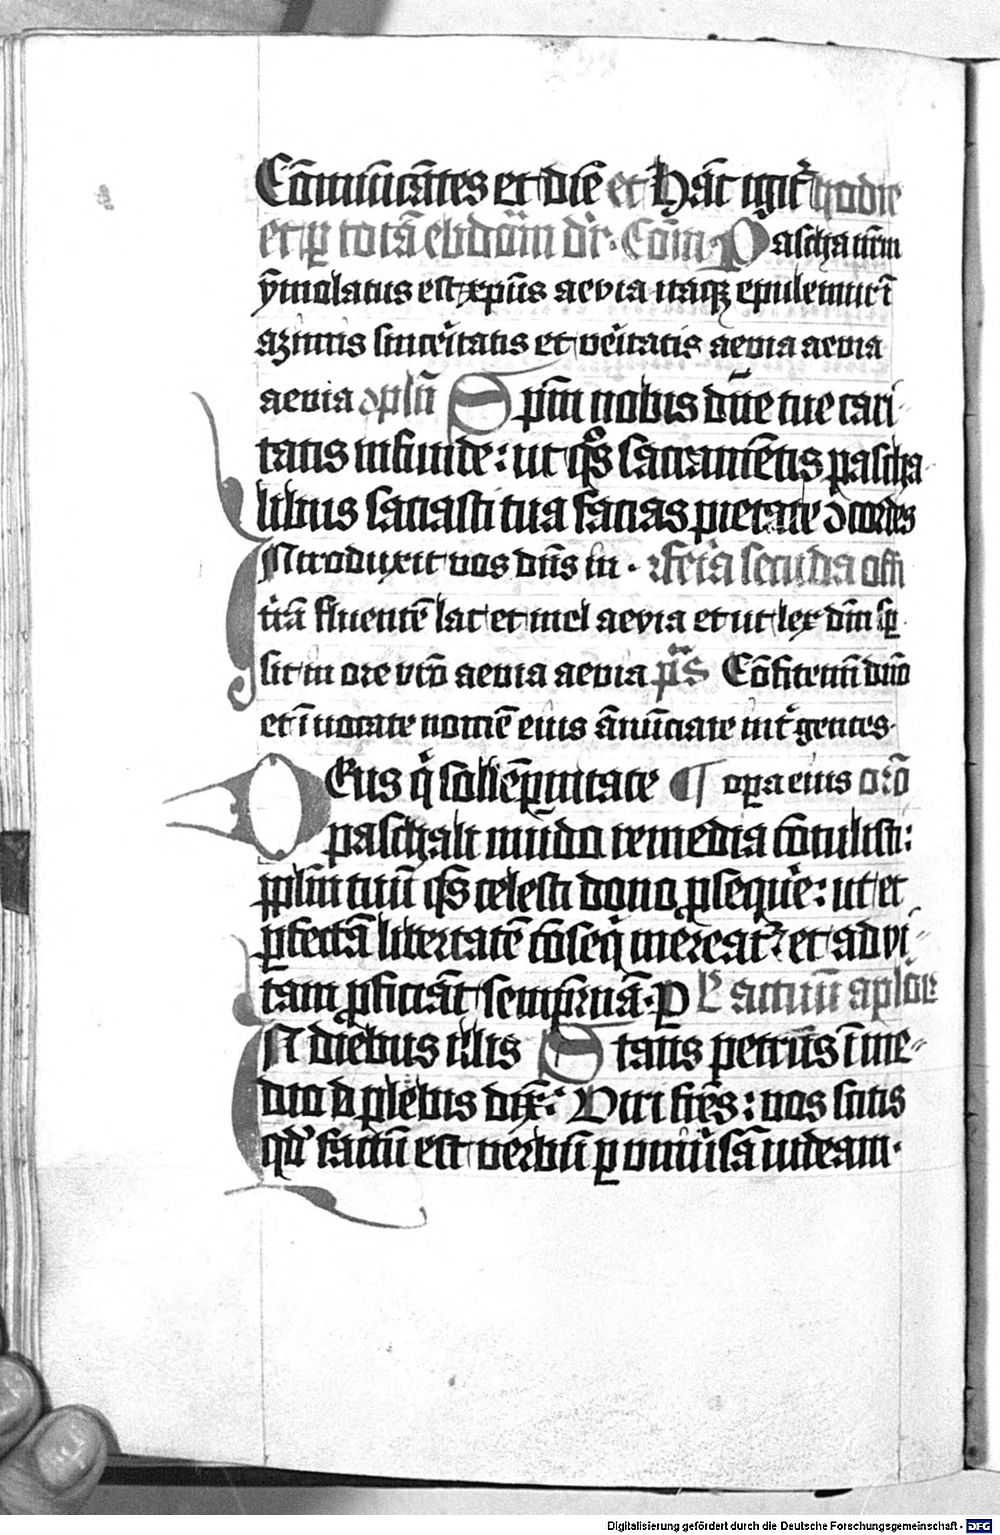 Cōmuīcātes et diē et hāc igit᷑ hodie
et ꝑ totā ebdōm̄ dr̄. Cōm̄ Pascha nr̄m
ẏmolatus est xp̄us aevia itaqꝫ epulemur ī
azimis sincẽitatis et vẽitatis aevia aevia
aevia Cōplēn̄ Spm̄ nobis dn̄e tue cari
tatis infunde: ut qͦs sacramētis pascha
libus saciasti tua facias pietate ꝯcordes
Introduxit vos dn̄s in . feria secūda offi
tr̄ā fluentē lac et mel aevia et ut lex dm̄ sꝑ
sit in ore vr̄o aevia aevia p̄s Cōfitemī dn̄o
et īvocate nomē eius ānūciate int᷑ gentes.
Deus q̇ sollēpnitate ¶ oꝑa eius or̄o
paschali mūdo remedia cōtulisti:
pplm̄ tuū qͦs celesti dono ꝓseque͛: ut et
ꝑfectā libertatē cōseq̇ mereat᷑: et ad vi
tam ꝓficiāt sempit᷑nā. P L actuū aplōꝝ
In diebus illis Stans petrus ī me-
dio plebis dix̄: Viri fr̄es: vos scitis
qd᷑ factū est verbū ꝑ univ͛sā iudeam.
Digitalisierung gefördert durch die Deutsche Forschungsgemeinschaft - DFG